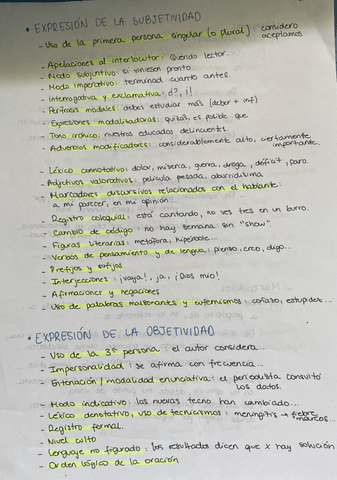 • EXPRESIÓN DE LA SUBJETIVIDAD
- Uso de la primera persona singular (o plural): considero
aceptamos
- Apelaciones al interlocutor: Querido lector.
- Modo subjuntivo: si viniesen pronto
- Modo imperativo: terminad cuanto antes.
- interrogativa y exclamativa: ¿?, ¡!
- Perífrosis modales: debéis estudiar más (deber + inf)
- Expresiones modalizadoras: quizás, es posible que
- Tono irónico: nuestros educados delincuentes.
- Adverbios modificadores: considerablemente alto, ciertamente
importante.
- Léxico connotativo: dolor, miseria, guerra, droga, déficit, paro.
- Adjetivos valorativos: película pesada, aburridísima
- Marcadores discursivos relacionados con el hablante:
a mi parecer, en mi opinión...
- Registro coloquial: está cantando, no ves tres en un burro.
- Cambio de código: no hay semana sin "show"
- Figuras literarias: metáfora, hipérbole...
- Verbos de pensamiento y de lengua: pienso, creo, digo...
- Prefijos y sufijos
- Interjecciones: ¡vaya!, ja, ¡Dios mío!
- Afirmaciones y negaciones
- Uso de palabras malsonantes y eufemismos: coñazo, estupidez...
• EXPRESIÓN DE LA OBJETIVIDAD
- Uso de la 3ª persona: el autor considera...
- Impersonalidad: se afirma con frecuencia...
- Entonación/modalidad enunciativa: el periodista consultó
los datos.
- Modo indicativo: las nuevas tecno han cambiado...
- Léxico denotativo, uso de tecnicismos: meningitis → fiebre
mareos...
- Registro formal.
- Nivel culto
- Lenguaje no figurado: los resultados dicen que x hay solución
- Orden lógico de la oración